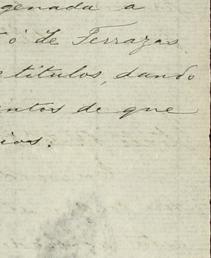 genada a
tó de Terrazas
stitulos, dando
intos de que
ios.